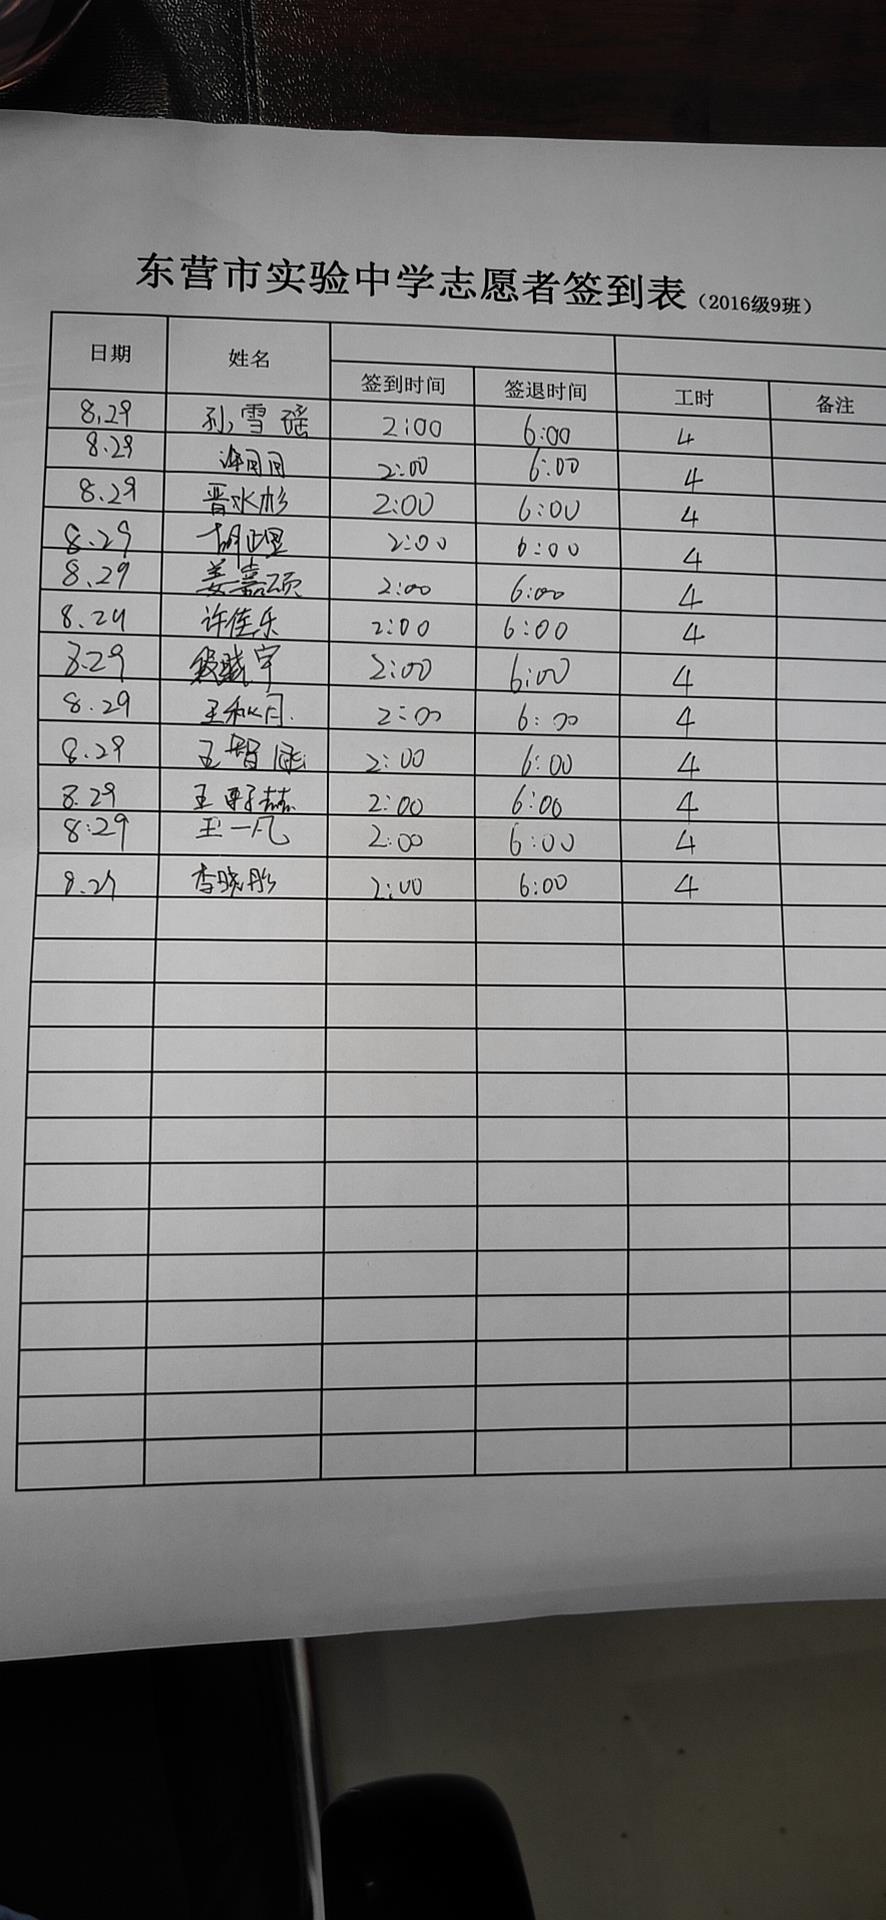 东营市实验中学志愿者签到表（2016级9班）
日期 姓名 签到时间 签退时间 工时 备注
8.29 孙雪瑶 2:00 6:00 4
8.29 2:00 6:00 4
8.29 晋水杉 2:00 6:00 4
8.29 2:00 6:00 4
8.29 姜嘉硕 2:00 6:00 4
8.29 许佳乐 2:00 6:00 4
8.29 段晓宇 2:00 6:00 4
8.29 王秋月 2:00 6:00 4
8.29 王智涵 2:00 6:00 4
8.29 王 2:00 6:00 4
8:29 王一凡 2:00 6:00 4
8.29 李晓彤 2:00 6:00 4